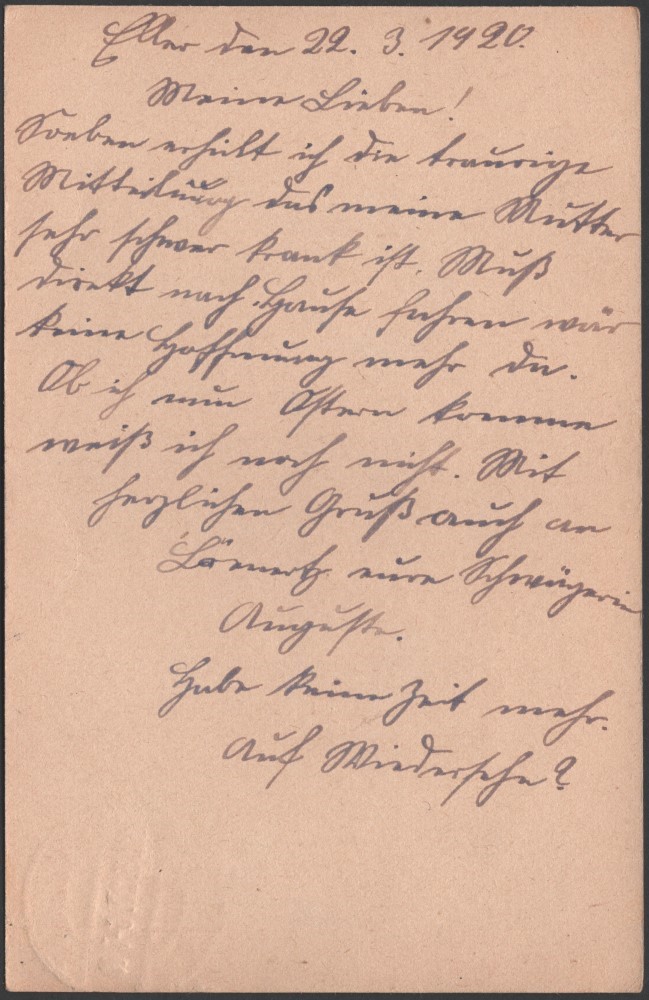 Eller den 22. 3. 1920.
Meine Lieben!
Soeben erhielt ich die traurige
Mitteilung das meine Mutter
sehr schwer krank ist. Muß
direkt nach Hause fahren wär
keine Hoffnung mehr da.
Ob ich nun Ostern komme
weiß ich noch nicht. Mit
herzlichen Gruß auch an
eure Schwägerin
Auguste.
Habe keine Zeit mehr.
Auf Wiedersehn?